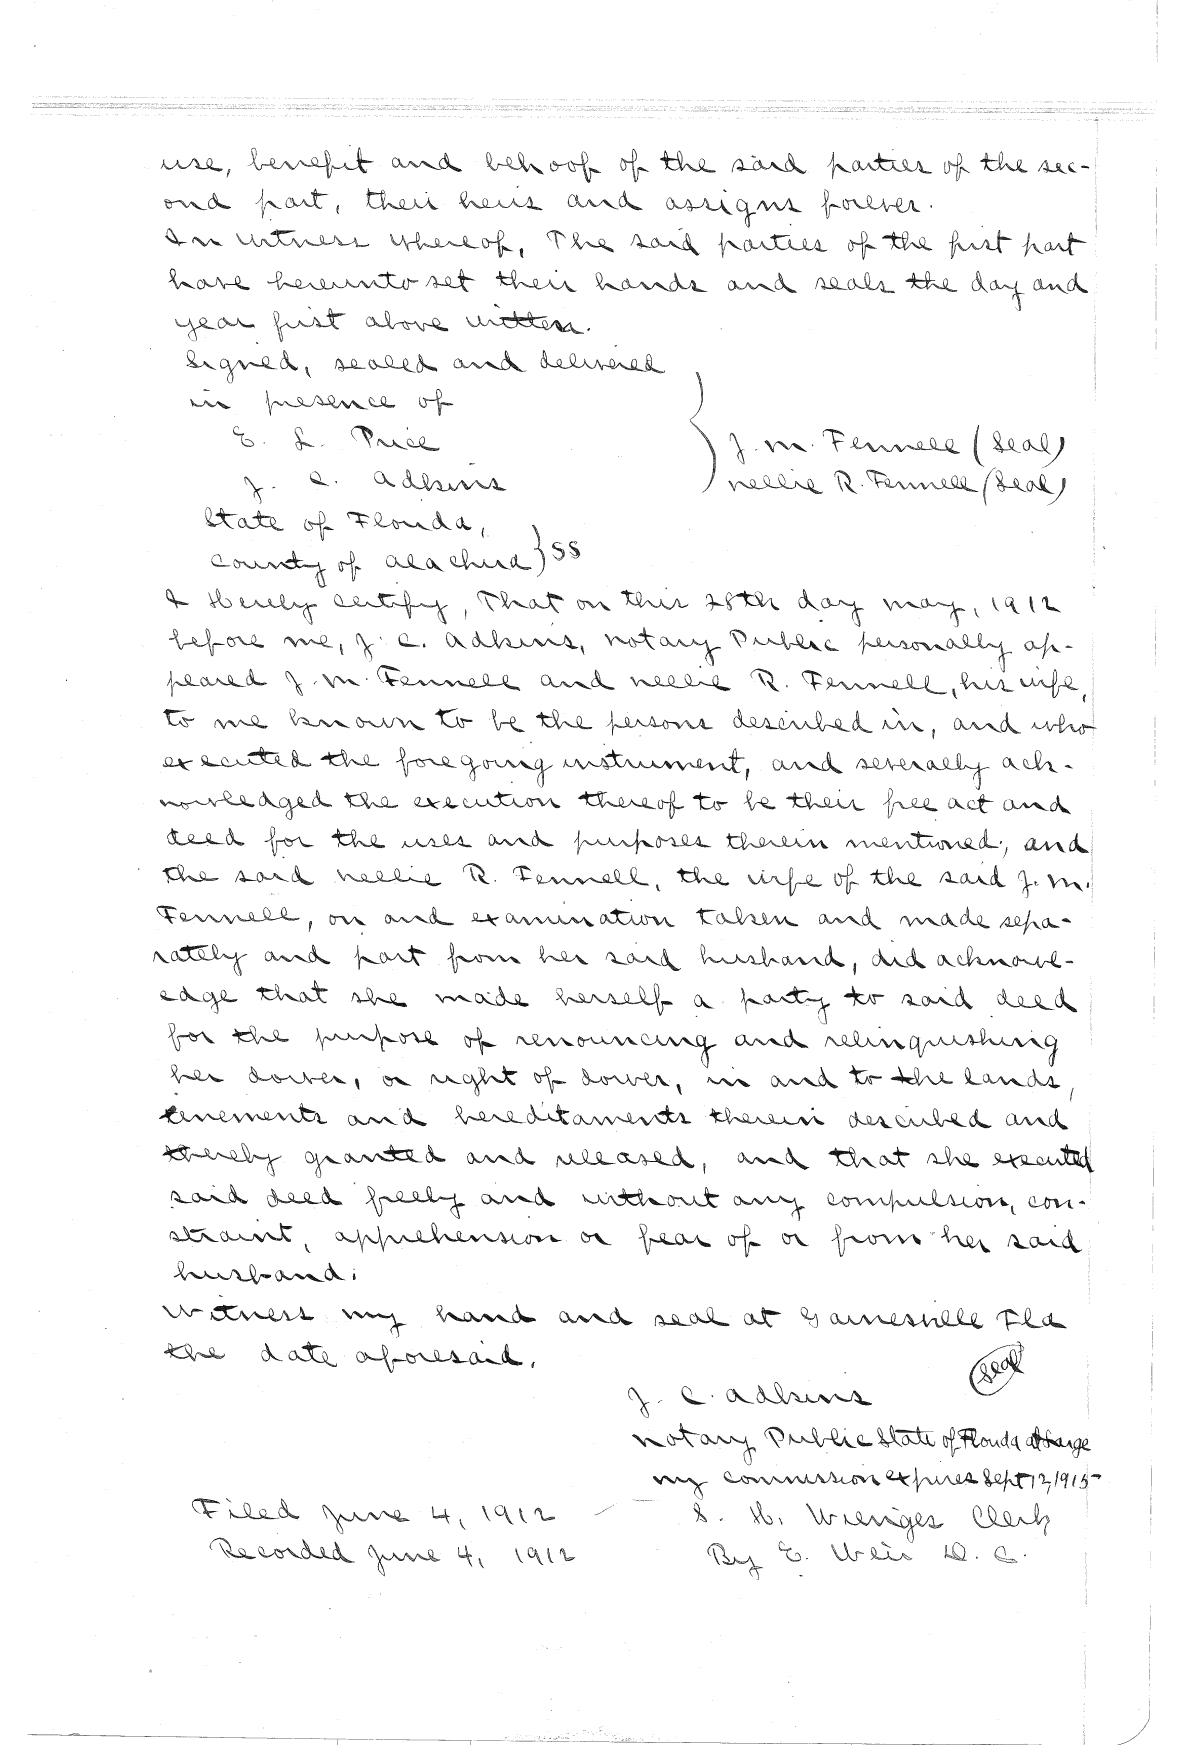 use, benefit and behoof of the said parties of the sec-
ond part, their heirs and assigns forever.
In witness whereof, The said parties of the first part
have hereunto set their hands and seals the day and
year first above written.
Signed, sealed and delivered
in presence of
E. L. Price
J. M. Fennell (Seal)
J. C. Adkins
Nellie R. Fennell (Seal)
State of Florida,
County of Alachua } SS
I Hereby certify, That on this 28th day May, 1912
before me, J. C. Adkins, Notary Public personally ap-
peared J. M. Fennell and Nellie R. Fennell, his wife,
to me known to be the persons described in, and who
executed the foregoing instrument, and severally ack-
nowledged the execution thereof to be their free act and
deed for the uses and purposes therein mentioned; and
the said Nellie R. Fennell, the wife of the said J. M.
Fennell, on and examination taken and made sepa-
rately and part from her said husband, did acknowl-
edge that she made herself a party to said deed
for the purpose of renouncing and relinquishing
her dower, or right of dower, in and to the lands,
tenements and hereditaments therein described and
thereby granted and released, and that she executed
said deed freely and without any compulsion, con-
straint, apprehension or fear of or from her said
husband.
Witness my hand and seal at Gainesville Fla
the date aforesaid.
Seal
J. C. Adkins
Notary Public State of Florida at Large
My commission expires Sept 12, 1915
Filed June 4, 1912
S. H. Wienges Clerk
Recorded June 4, 1912
By E. Weir D. C.